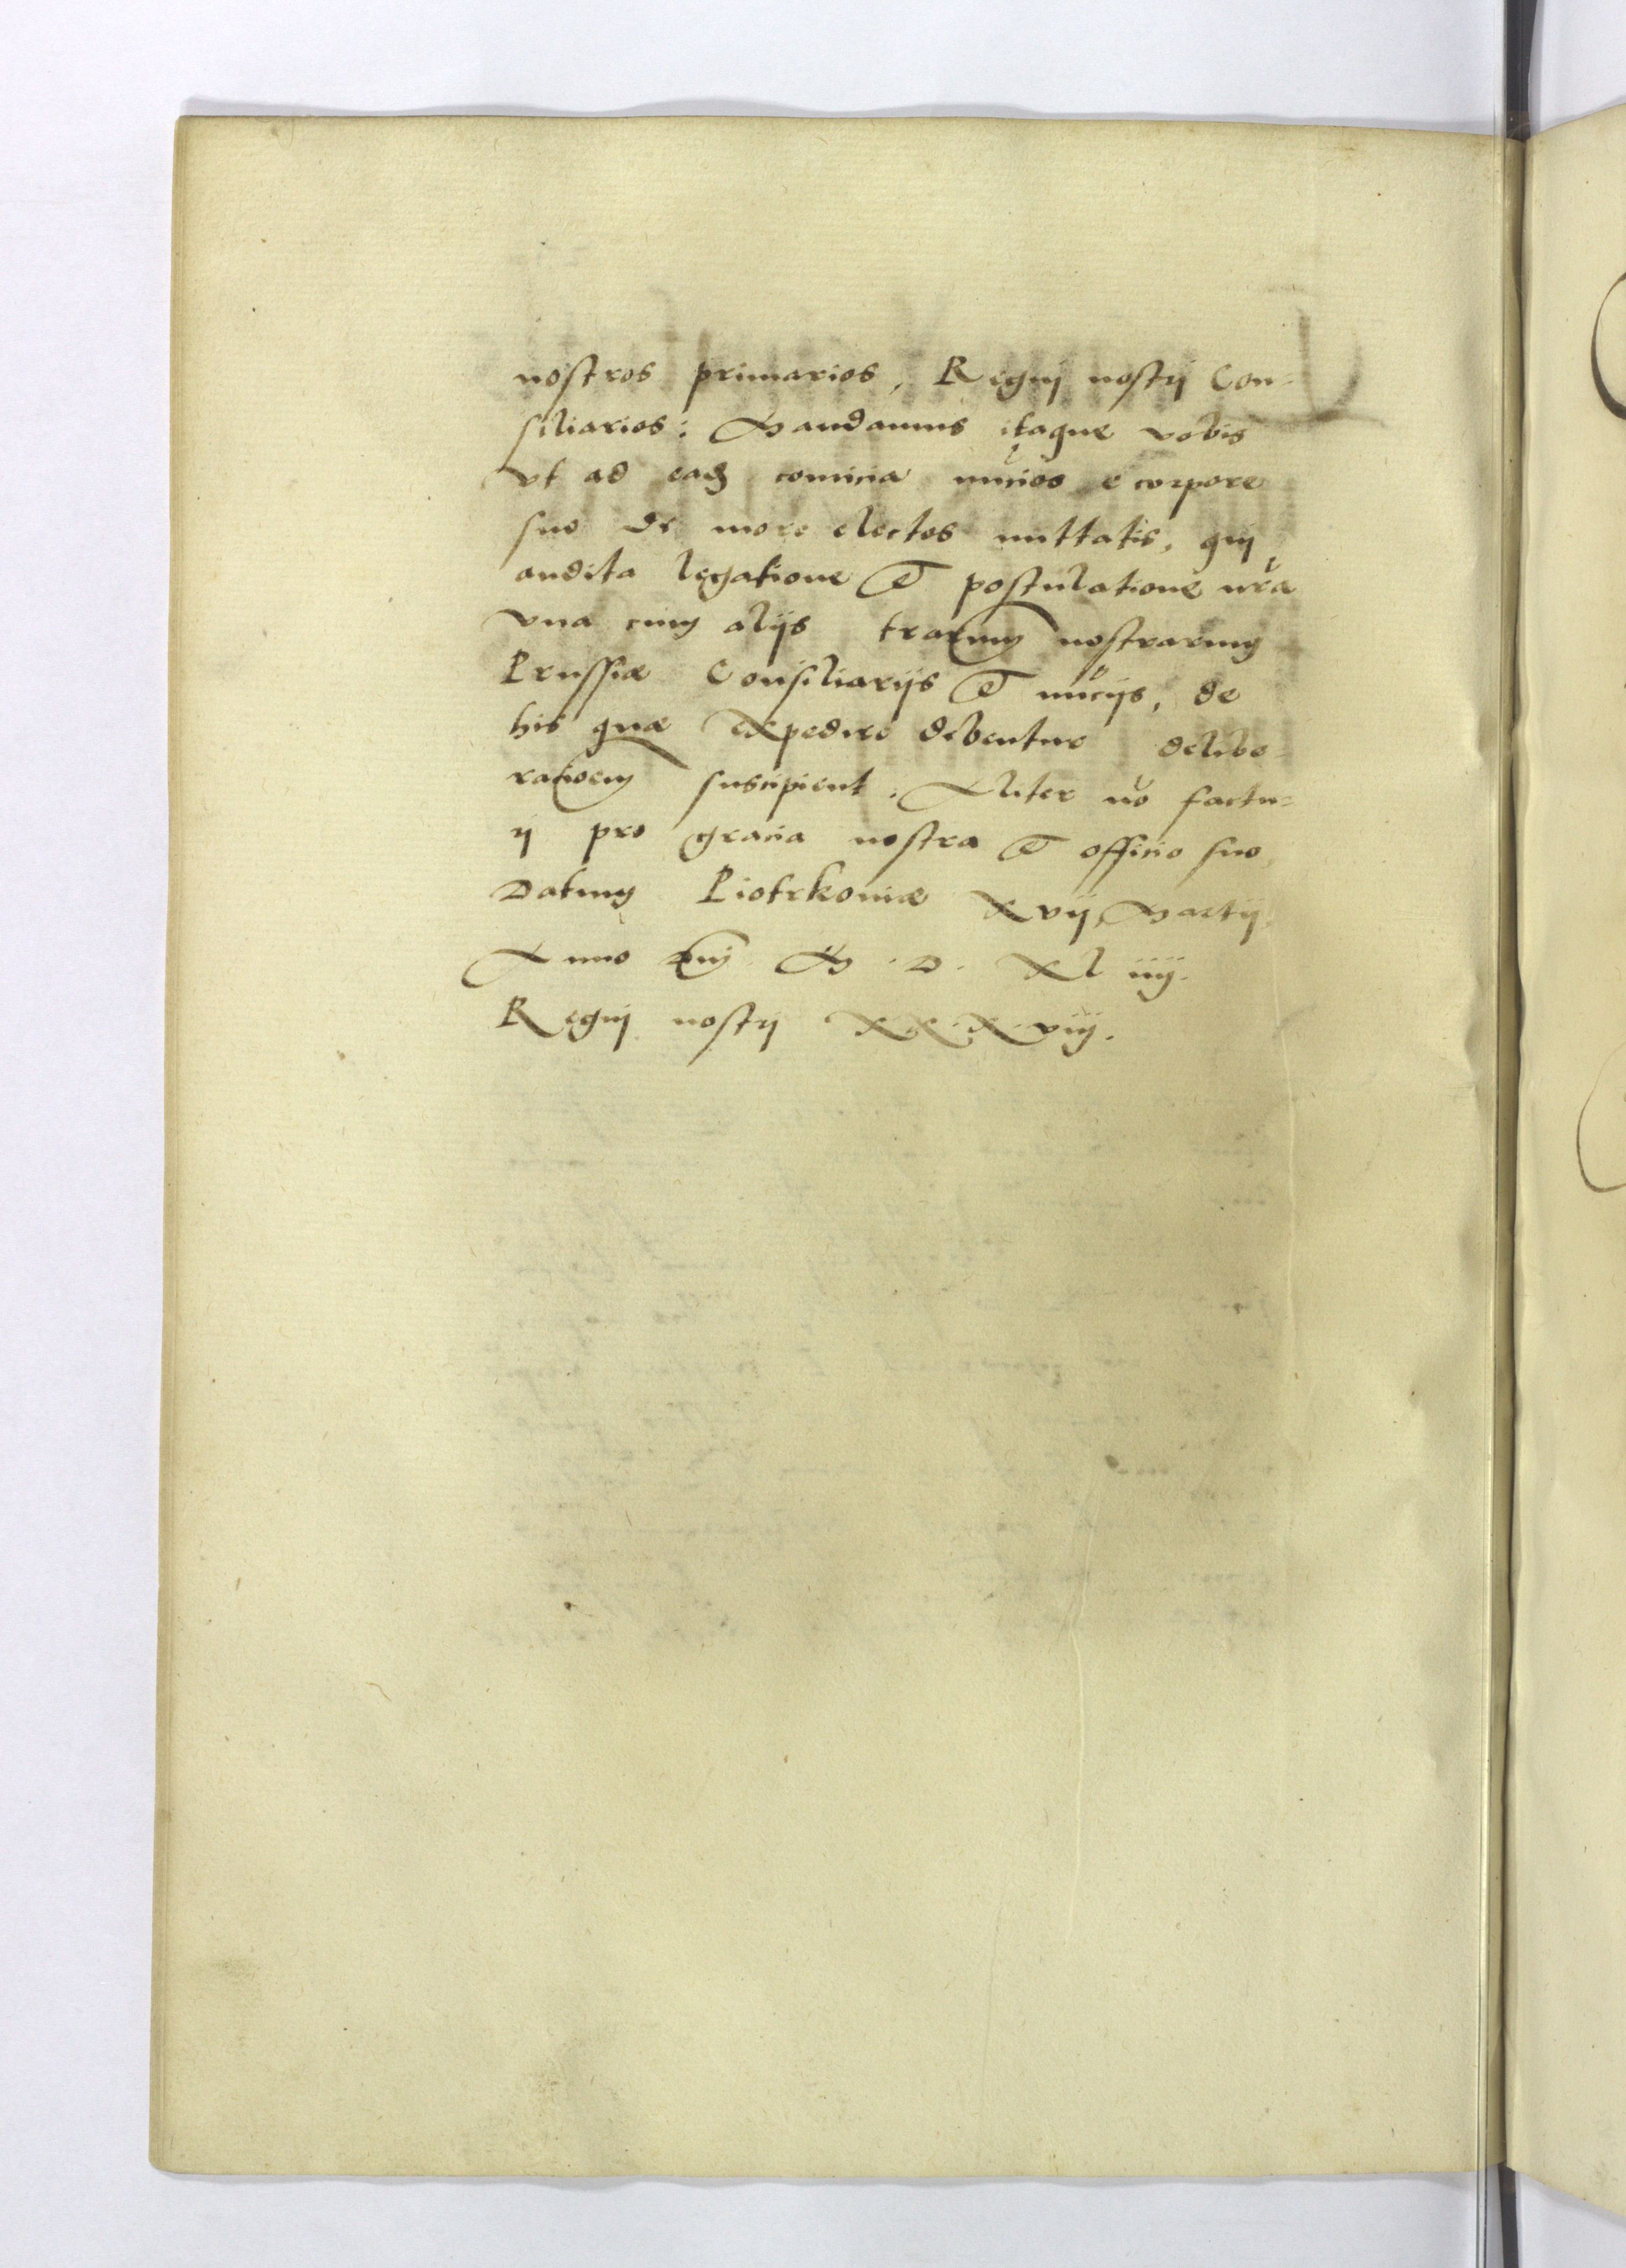 nostros primarios, Regnj nostrj Con-
siliarios: Mandamus itaque vobis
vt ad eadẽ comicia nũcios e corpore
suo de more electos mittatis, quj
audita legatione et postulatione nr̃a
vna cum alijs terrarum nostrarum
Prussiæ Consiliarijs et nũcijs, de
his quæ expedire debentur delibe-
rationem suscipient. Aliter nõ factu-
rj pro gracia nostra et officio suo.
Datum Piotrkoviæ xvij Martij
Anno Dnj M.D. Xl iiij.
Regnj nostrj XXXviij.